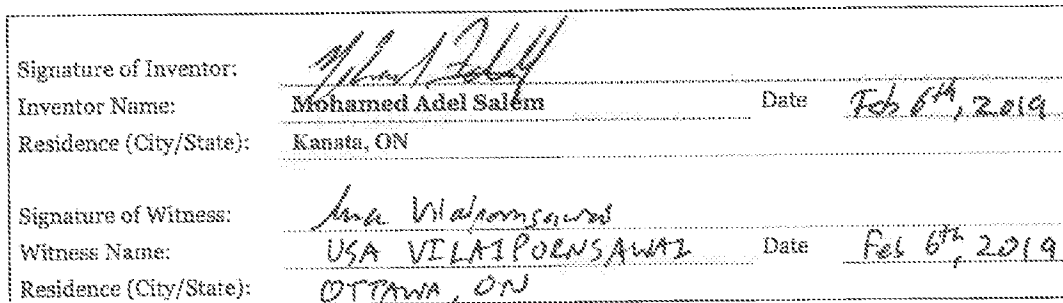 Signature of Inventor:
Inventor Name: Mohamed Adel Salem Date Feb 6th, 2019
Residence (City/State): Kanata, ON
Signature of Witness: Usa Vilaipornsawai
Witness Name: USA VILAIPORNSAWAI Date Feb 6th, 2019
Residence (City/State): OTTAWA, ON